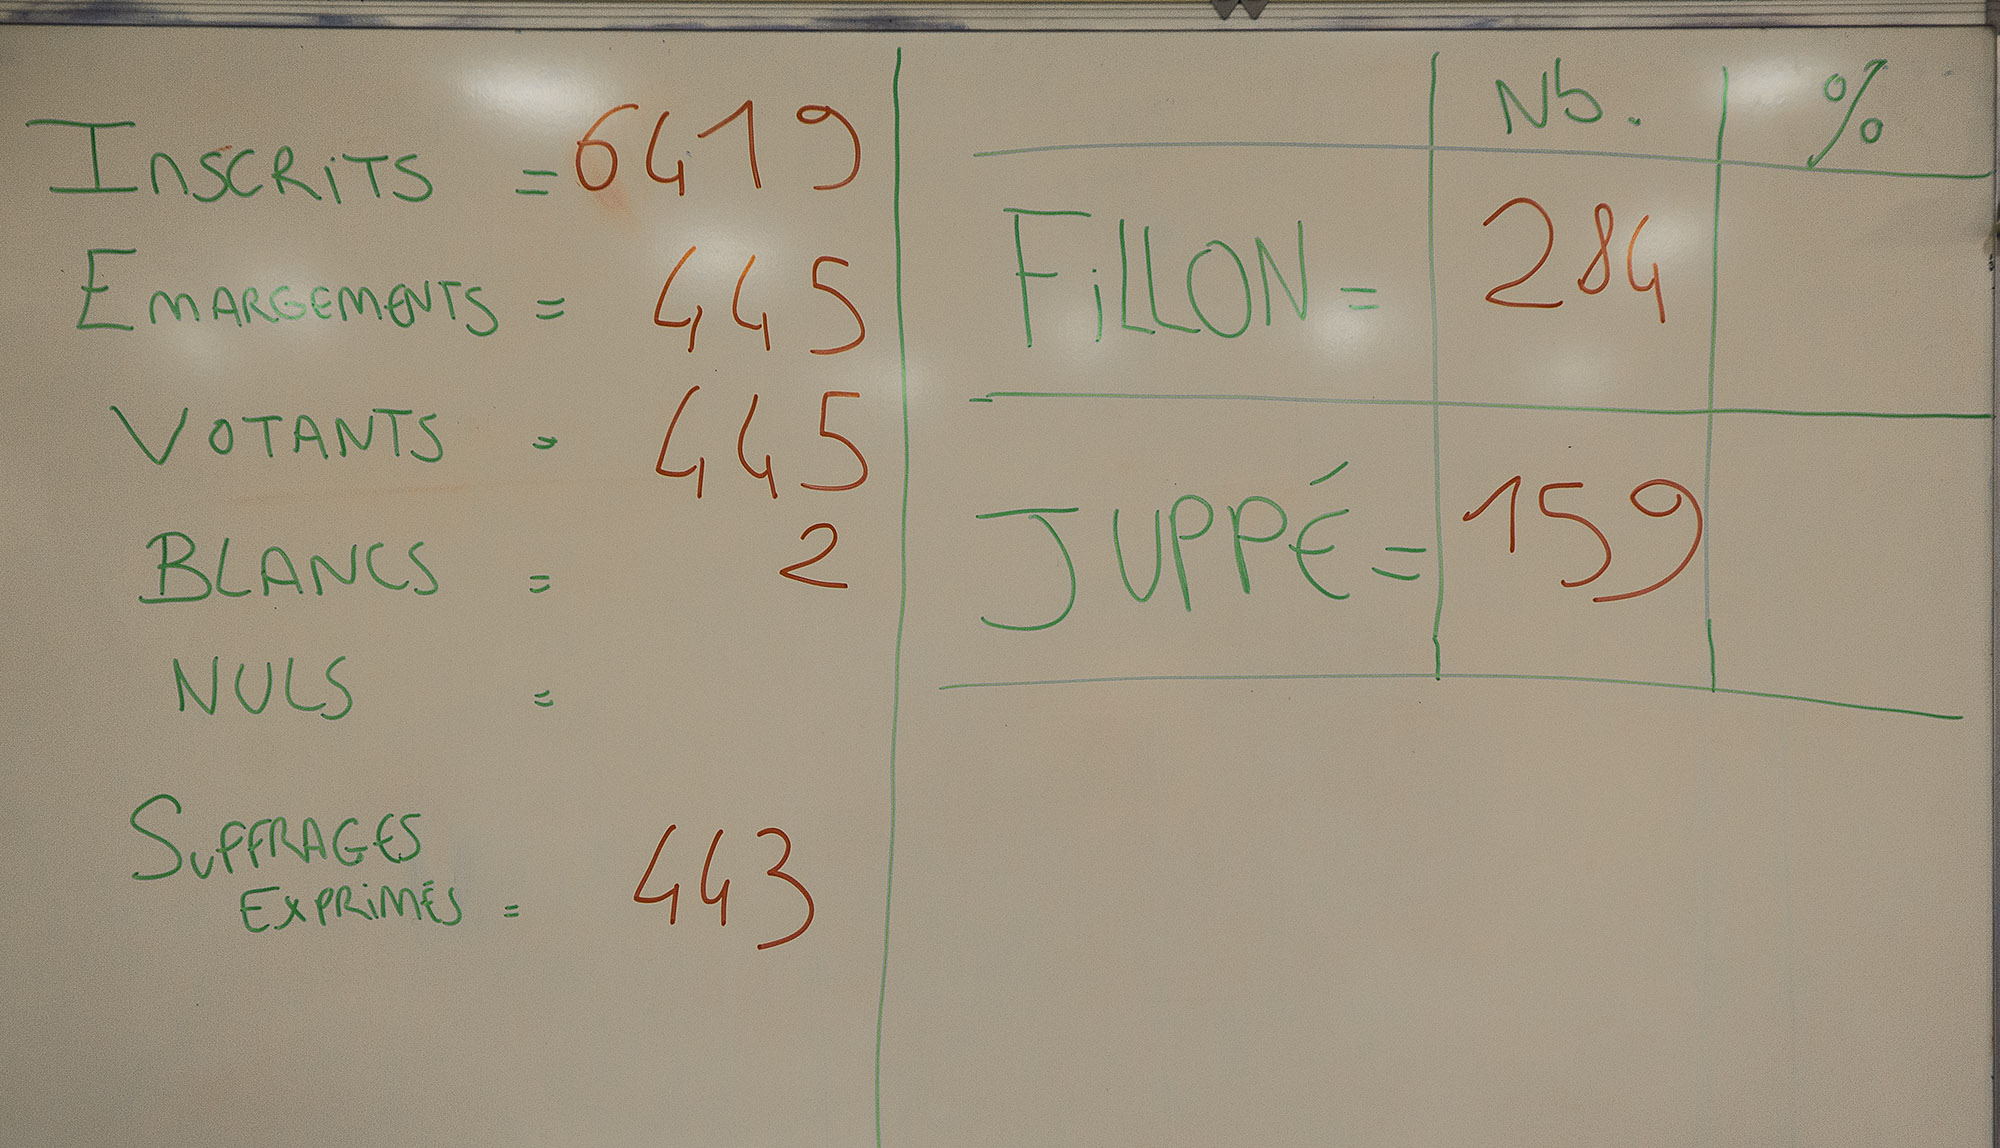 INSCRITS = 6419
EMARGEMENTS = 445
VOTANTS = 445
BLANCS = 2
NULS =
SUFFRAGES
EXPRIMÉS = 443
Nb. %
FiLLON = 284
JUPPÉ = 159